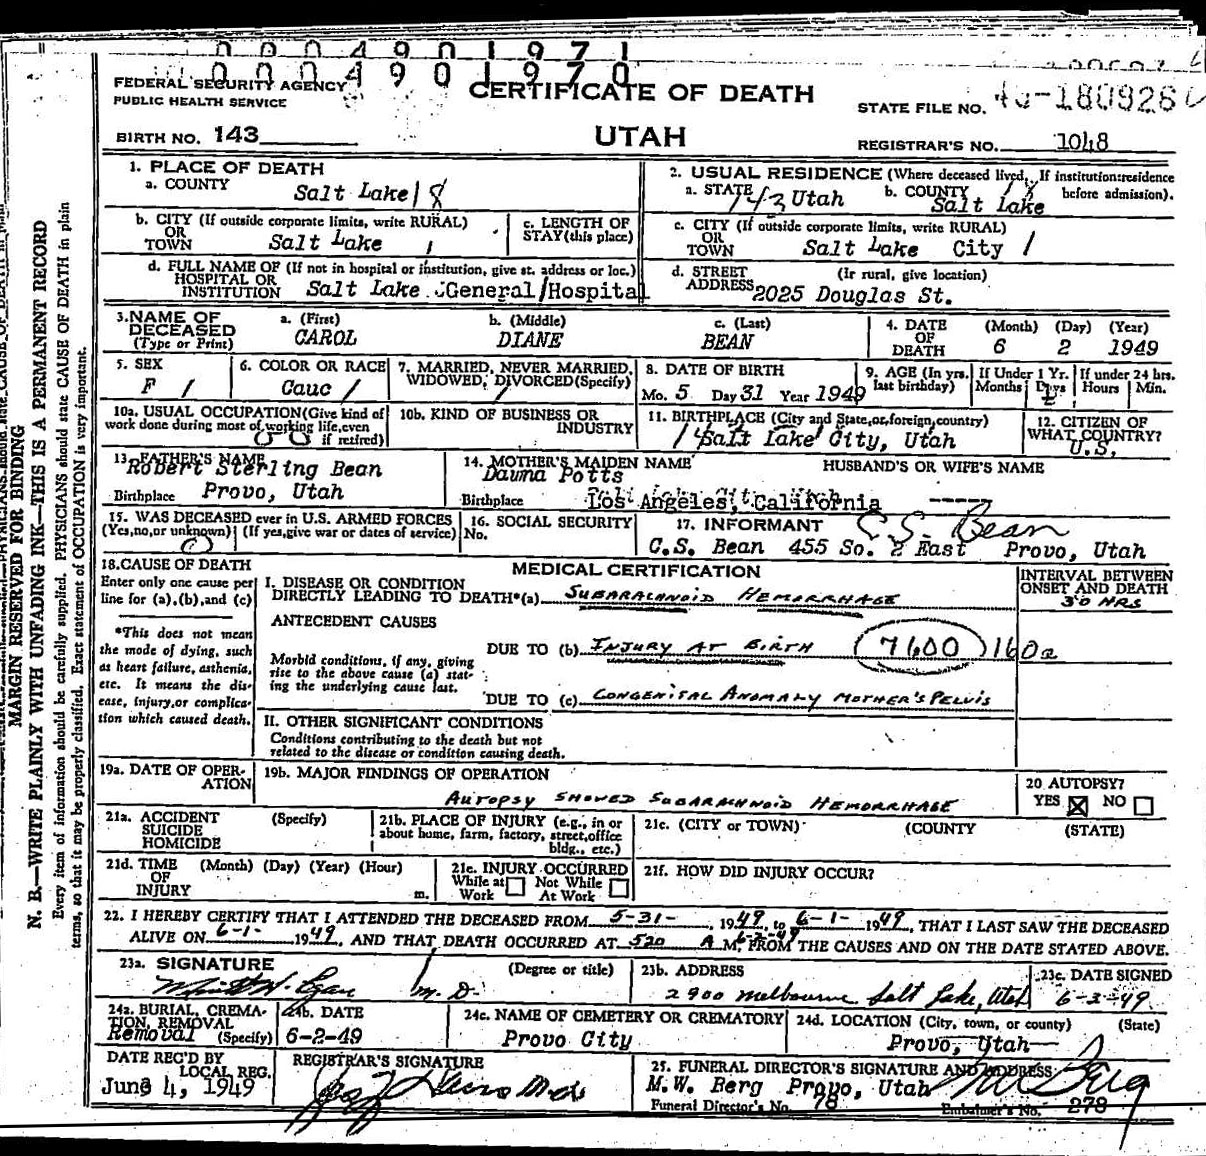 0004901971
0004901970
FEDERAL SECURITY AGENCY
PUBLIC HEALTH SERVICE
CERTIFICATE OF DEATH
STATE FILE NO.
BIRTH NO. 143
UTAH
REGISTRAR'S NO. 1048
1. PLACE OF DEATH
a. COUNTY Salt Lake 18
2. USUAL RESIDENCE (Where deceased lived. If institution:residence before admission).
a. STATE 143 Utah b. COUNTY 18 Salt Lake
b. CITY (If outside corporate limits, write RURAL) OR TOWN Salt Lake
c. LENGTH OF STAY (this place)
c. CITY (If outside corporate limits, write RURAL) OR TOWN Salt Lake City 1
d. FULL NAME OF (If not in hospital or institution, give st. address or loc.) HOSPITAL OR INSTITUTION Salt Lake General Hospital
d. STREET ADDRESS (Ir rural, give location) 2025 Douglas St.
3. NAME OF DECEASED (Type or Print)
a. (First) CAROL
b. (Middle) DIANE
c. (Last) BEAN
4. DATE OF DEATH (Month) (Day) (Year) 6 2 1949
5. SEX F 1
6. COLOR OR RACE Cauc 1
7. MARRIED, NEVER MARRIED, WIDOWED, DIVORCED(Specify) 1
8. DATE OF BIRTH Mo. 5 Day 31 Year 1949
9. AGE (In yrs. last birthday) If Under 1 Yr. Months Days If under 24 hrs. Hours Min.
10a. USUAL OCCUPATION(Give kind of work done during most of working life,even if retired)
10b. KIND OF BUSINESS OR INDUSTRY
11. BIRTHPLACE (City and State,or,foreign,country) Salt Lake City, Utah
12. CITIZEN OF WHAT COUNTRY? U.S.
13. FATHER'S NAME Robert Sterling Bean
Birthplace Provo, Utah
14. MOTHER'S MAIDEN NAME Dawna Potts
Birthplace Los Angeles, California
HUSBAND'S OR WIFE'S NAME -----
15. WAS DECEASED ever in U.S. ARMED FORCES (Yes,no,or unknown) (If yes,give war or dates of service)
16. SOCIAL SECURITY No.
17. INFORMANT C.S. Bean
C.S. Bean 455 So. 2 East Provo, Utah
18. CAUSE OF DEATH
Enter only one cause per line for (a),(b),and (c)
MEDICAL CERTIFICATION
INTERVAL BETWEEN ONSET AND DEATH
30 HRS
I. DISEASE OR CONDITION DIRECTLY LEADING TO DEATH*(a) SUBARACHNOID HEMORRHAGE
*This does not mean the mode of dying, such as heart failure, asthenia, etc. It means the disease, injury,or complication which caused death.
ANTECEDENT CAUSES
Morbid conditions, if any, giving rise to the above cause (a) stating the underlying cause last.
DUE TO (b) INJURY AT BIRTH 7600 160a
DUE TO (c) CONGENITAL ANOMALY MOTHER'S PELVIS
II. OTHER SIGNIFICANT CONDITIONS
Conditions contributing to the death but not related to the disease or condition causing death.
19a. DATE OF OPERATION
19b. MAJOR FINDINGS OF OPERATION
AUTOPSY SHOWED SUBARACHNOID HEMORRHAGE
20 AUTOPSY?
YES NO
21a. ACCIDENT SUICIDE HOMICIDE (Specify)
21b. PLACE OF INJURY (e.g., in or about home, farm, factory, street,office bldg., etc.)
21c. (CITY or TOWN) (COUNTY (STATE)
21d. TIME OF INJURY (Month) (Day) (Year) (Hour) m.
21e. INJURY OCCURRED While at Work Not While At Work
21f. HOW DID INJURY OCCUR?
22. I HEREBY CERTIFY THAT I ATTENDED THE DECEASED FROM 5-31- 1949, to 6-1- 1949, THAT I LAST SAW THE DECEASED
ALIVE ON 6-1- 1949, AND THAT DEATH OCCURRED AT 520 A M, 6-2-49 FROM THE CAUSES AND ON THE DATE STATED ABOVE.
23a. SIGNATURE (Degree or title) M.D.
23b. ADDRESS 2900 Melbourne Salt Lake, Utah
23c. DATE SIGNED 6-3-49
24a. BURIAL, CREMATION, REMOVAL (Specify) Removal
24b. DATE 6-2-49
24c. NAME OF CEMETERY OR CREMATORY Provo City
24d. LOCATION (City, town, or county) (State) Provo, Utah
DATE REC'D BY LOCAL REG. June 4, 1949
REGISTRAR'S SIGNATURE
25. FUNERAL DIRECTOR'S SIGNATURE AND ADDRESS
M.W. Berg Provo, Utah
Funeral Director's No. 78 Embalmer's No. 278
MARGIN RESERVED FOR BINDING
N. B.—WRITE PLAINLY WITH UNFADING INK—THIS IS A PERMANENT RECORD
Every item of information should be carefully supplied. PHYSICIANS should state CAUSE OF DEATH in plain
terms, so that it may be properly classified. Exact statement of OCCUPATION is very important.